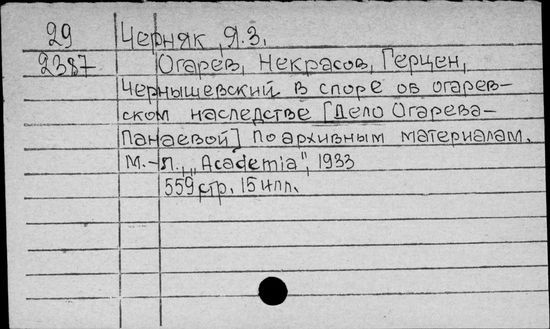 29 Черняк, Я.З.
2387 Огарев, Некрасов, Герцен,
Чернышевский в споре об огарев-
ском наследстве [Дело Огарева-
Панаевой] По архивным материалам.
М.-Л., "Academia", 1933
559 стр. 15 илл.